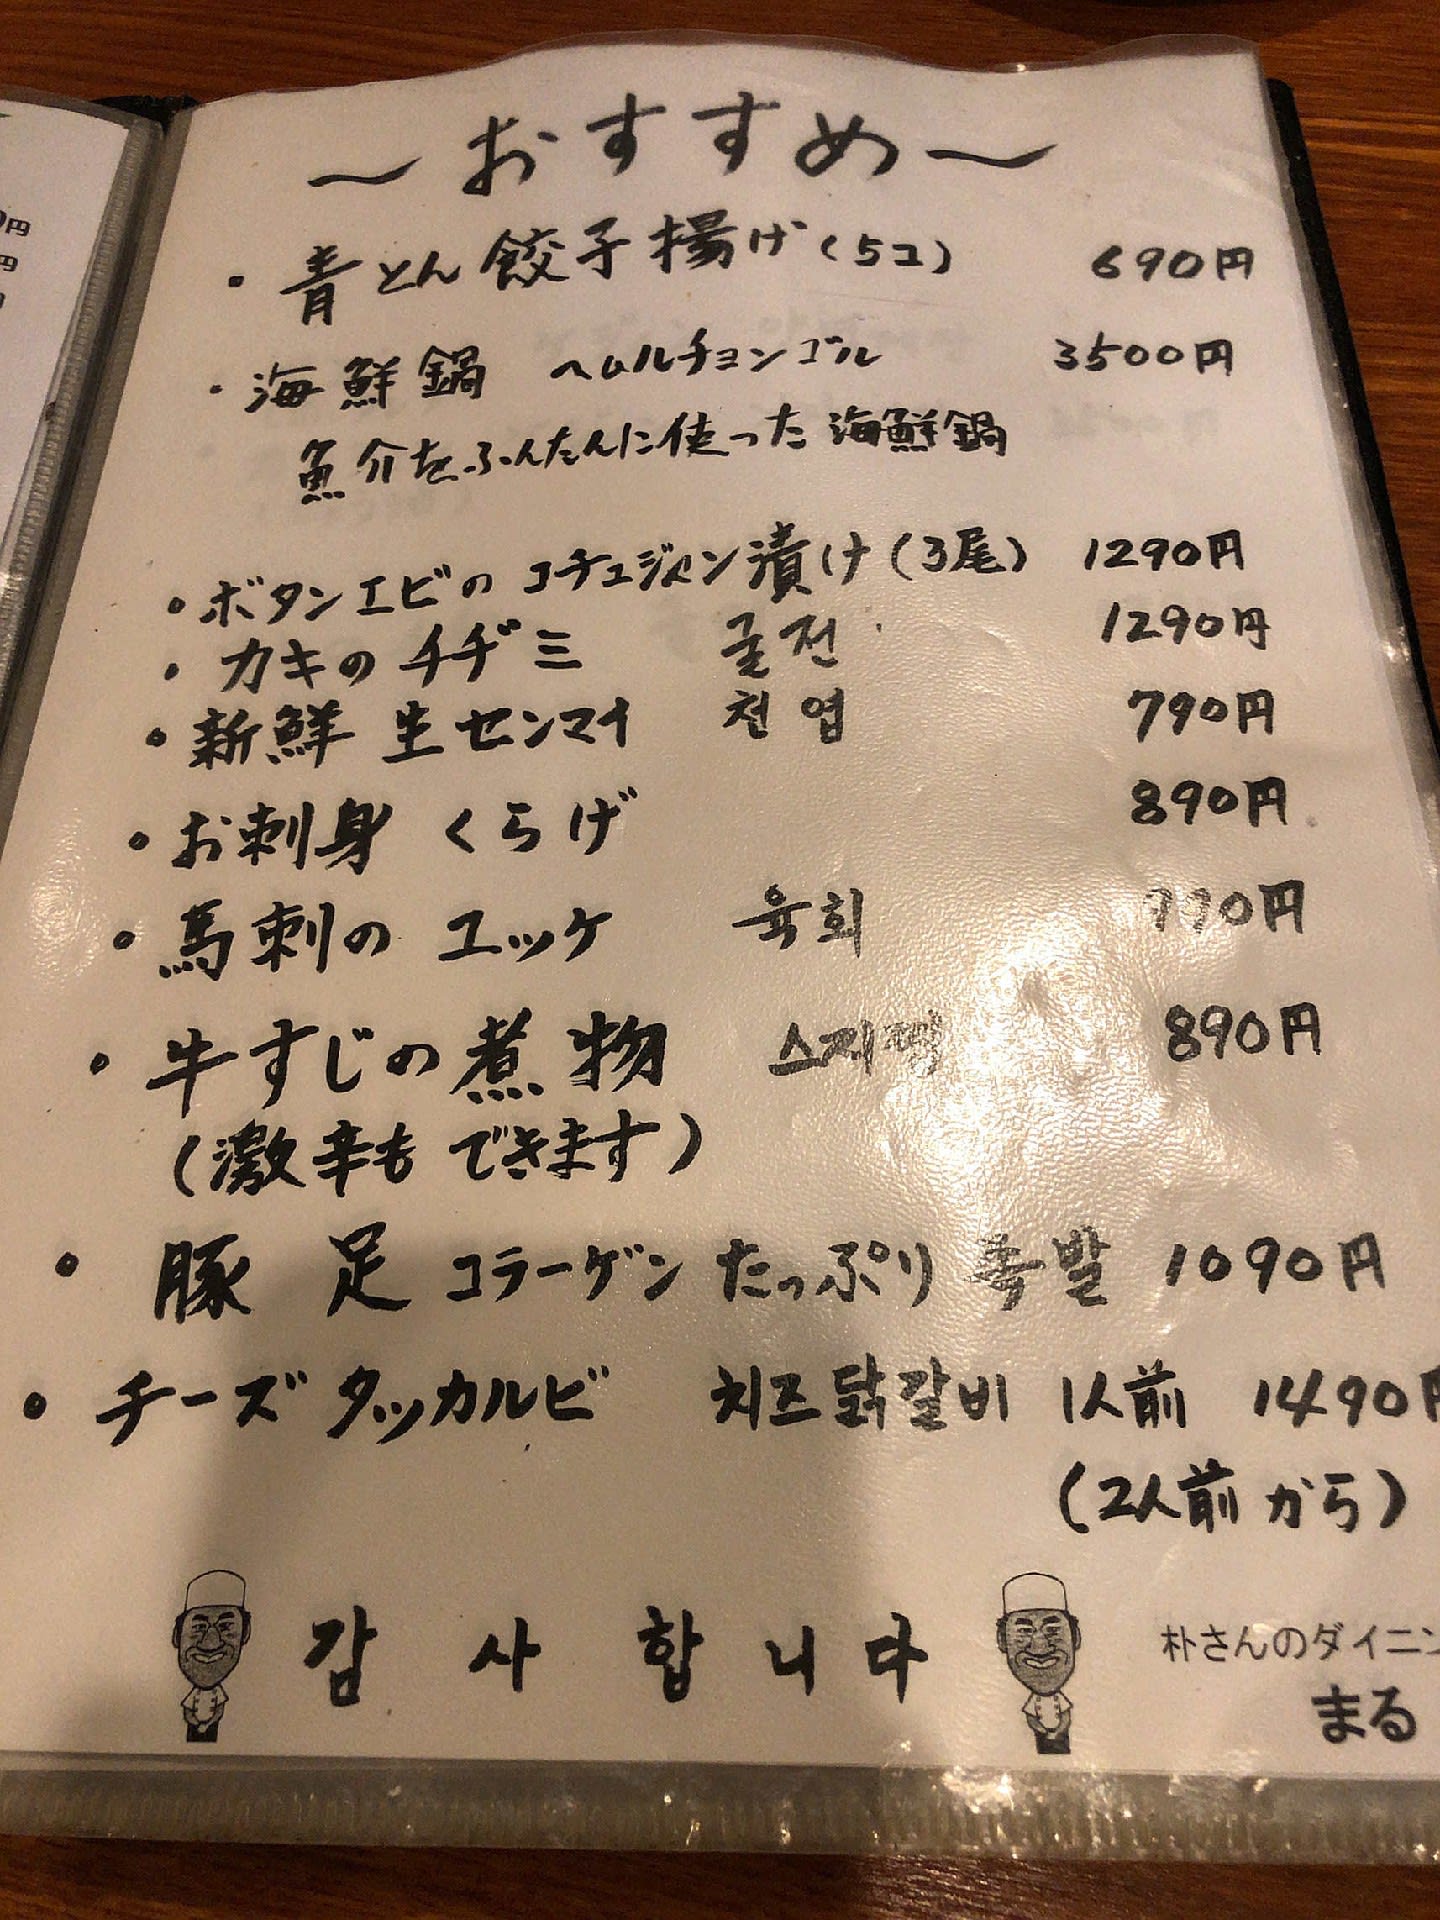 〜おすすめ〜
・青とん餃子揚げ(5コ) 690円
・海鮮鍋 ヘムルチョンゴル 3500円
魚介をふんだんに使った海鮮鍋
・ボタンエビのコチュジャン漬け(3尾) 1290円
・カキのチヂミ 굴전 1290円
・新鮮 生センマイ 천엽 790円
・お刺身 くらげ 890円
・馬刺の ユッケ 육회 990円
・牛すじの煮物 890円
(激辛もできます)
・豚足 コラーゲン たっぷり 족발 1090円
・チーズ タッカルビ 치즈닭갈비 1人前 1490円
(2人前から)
감사합니다
朴さんのダイニン
まる